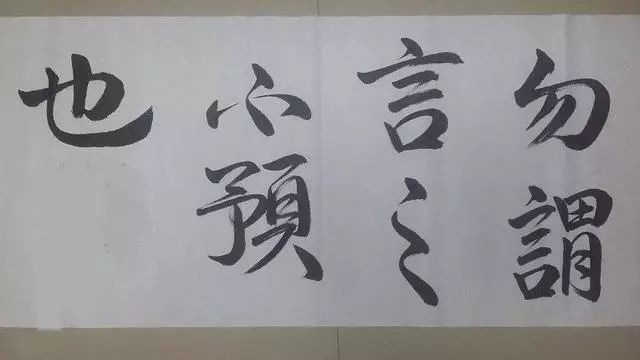 勿謂
言之
不預
也